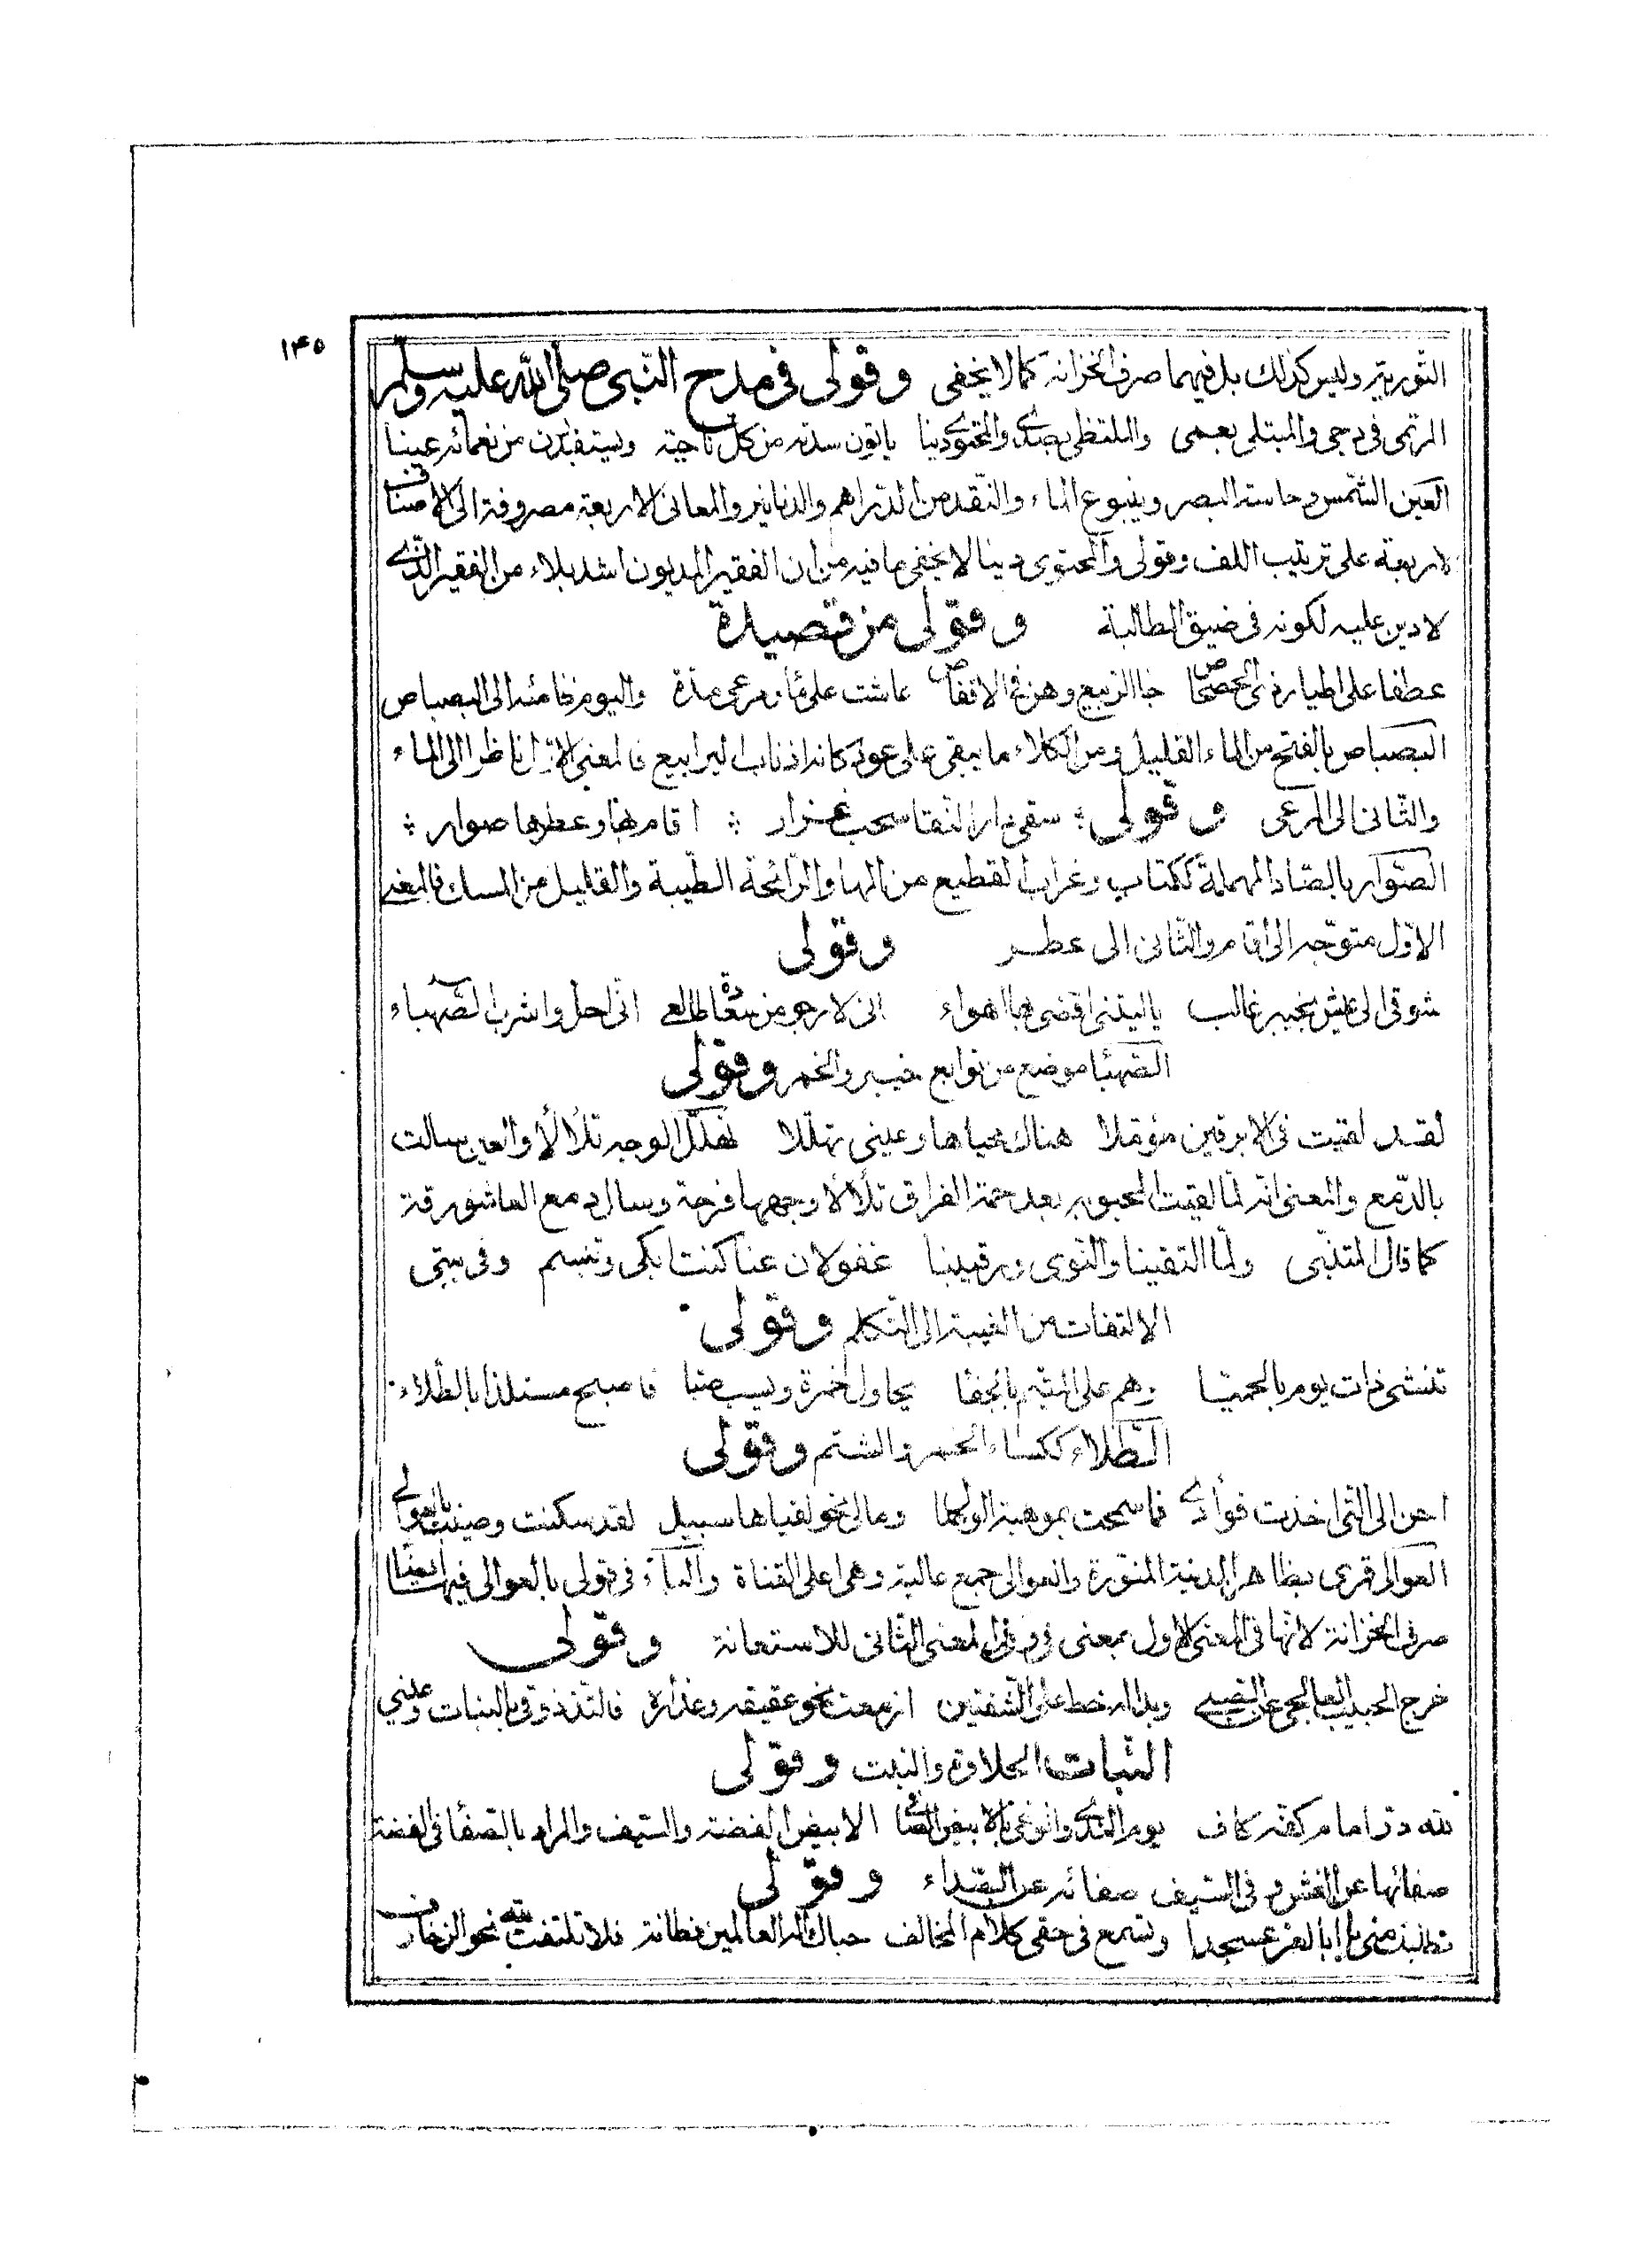 ١٤٥
التورية وليس كذلك بل فيهما صرف الخزانة كما لا يخفى وقولى فى مدح النبى صلى الله عليه وسلم
المرتمى فى دجى والمبتلى بعمى والملتظى بصدى والمحتوى دينا ياتون سدته من كل ناحية ويستفيدون من نعمائه عينا
العين الشمس وحاسة البصر وينبوع الماء والنقد من الدراهم والدنانير والمعانى الاربعة مصروفة الى الاصناف
الاربعة على ترتيب اللف وقولى والمحتوى دينا لا يخفى ما فيه من ان الفقير المديون اشد بلاء من الفقير الذى
لا دين عليه لكونه فى ضيق المطالبة وقولى من قصيدة
عطفا على اطيار ذى الصحصاح جا الربيع وهن فى الاقفاص عاشت على ماء ومرعى مدة واليوم ظامئه الى البصباص
البصباص بالفتح من الماء القليل ومن الكلاء ما يبقى على عود كانه اذناب اليرابيع فالمعنى الاول ناظر الى الماء
والثانى الى المرعى وقولى : سقى دار النقا سحب غزار : اقام بها وعطرها صوار :
الصوار بالصاد المهملة ككتاب وغراب القطيع من المها والرائحة الطيبة والقليل من المسك فالمعنى
الاول متوجه الى اقام والثانى الى عطر وقولى
شوقى الى عيش بخيبر غالب ياليتنى اقضى بها اهواء انى لارجو من طالعى انى احل واشرب الصهباء
الصهبا موضع من توابع خيبر والخمر وقولى
لقد لقيت فى الابرقين مؤملا هناك محياها وعينى تهللا تهلل الوجه تلألأ والعين سالت
بالدمع والمعنى انه لما لقيت المحبوبه بعد الفراق تلألأ وجهها فرحة وسال دمع العاشق رقة
كما قال المتنبى ولما التقينا والنوى ورقيبنا غفولان عنا كنت ابكى وتبسم وفى بيتى
الالتفات من الغيبة الى التكلم وقولى
تنشى ذات يوم بالحميا وهم على بالجفا يحاول خمرة ويسب صبا فاصبح مستلذا بالطلاء
الطلاء ككساء الخمر والشتم وقولى
احن الى التى اخذت فؤادى فما سمحت بموهبة الوصال ومالى نحو لقياها سبيل لقد سكنت وصينت بالعوالى
العوالى قرى بظاهر المدينة المنورة والعوالى جمع عالية وهى اعلى القناة والباء فى قولى بالعوالى فيها ايضا
صرف الخزانة لانها فى المعنى الاول بمعنى فى وفى المعنى الثانى للاستعانة وقولى
خرج الحبيب وبدا له خط على الشفتين ازمعت نحو عقيقه وعذاره فالتذ ذوقى بالنبات وعينى
النبات الحلاوة والنبت وقولى
لله در امام كفه كاف يوم الندى والوغى بالابيض الصافى الابيض الفضة والسيف والمراد بالصفا فى الفضة
صفائها عن الغش وفى السيف صفائه عن الصداء وقولى
منى يا ابا الفرع عسجدا وتسمع فى حقى كلام المخالف حباك اله العالمين فطانة فلا تلتفت لله نحو الزخارف